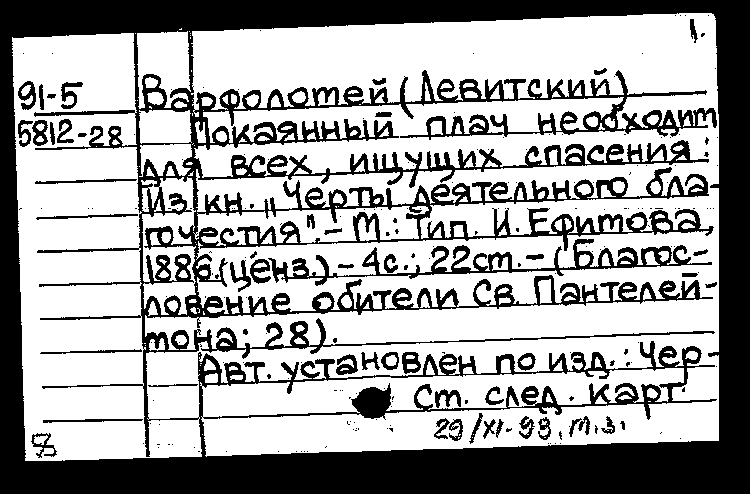 1.
91-5
5812-28
Варфоломей (Левитский)
Покаянный плач необходим
для всех, ищущих спасения:
Из кн. „Черты деятельного бла-
гочестия". - М.: Тип. И. Ефимова,
1886.(ценз.). - 4с.; 22см. - (Благос-
ловение обители Св. Пантелей-
мона; 28).
Авт. установлен по изд.: Чер-
См. след. карт.
29/XI-99. м.з.